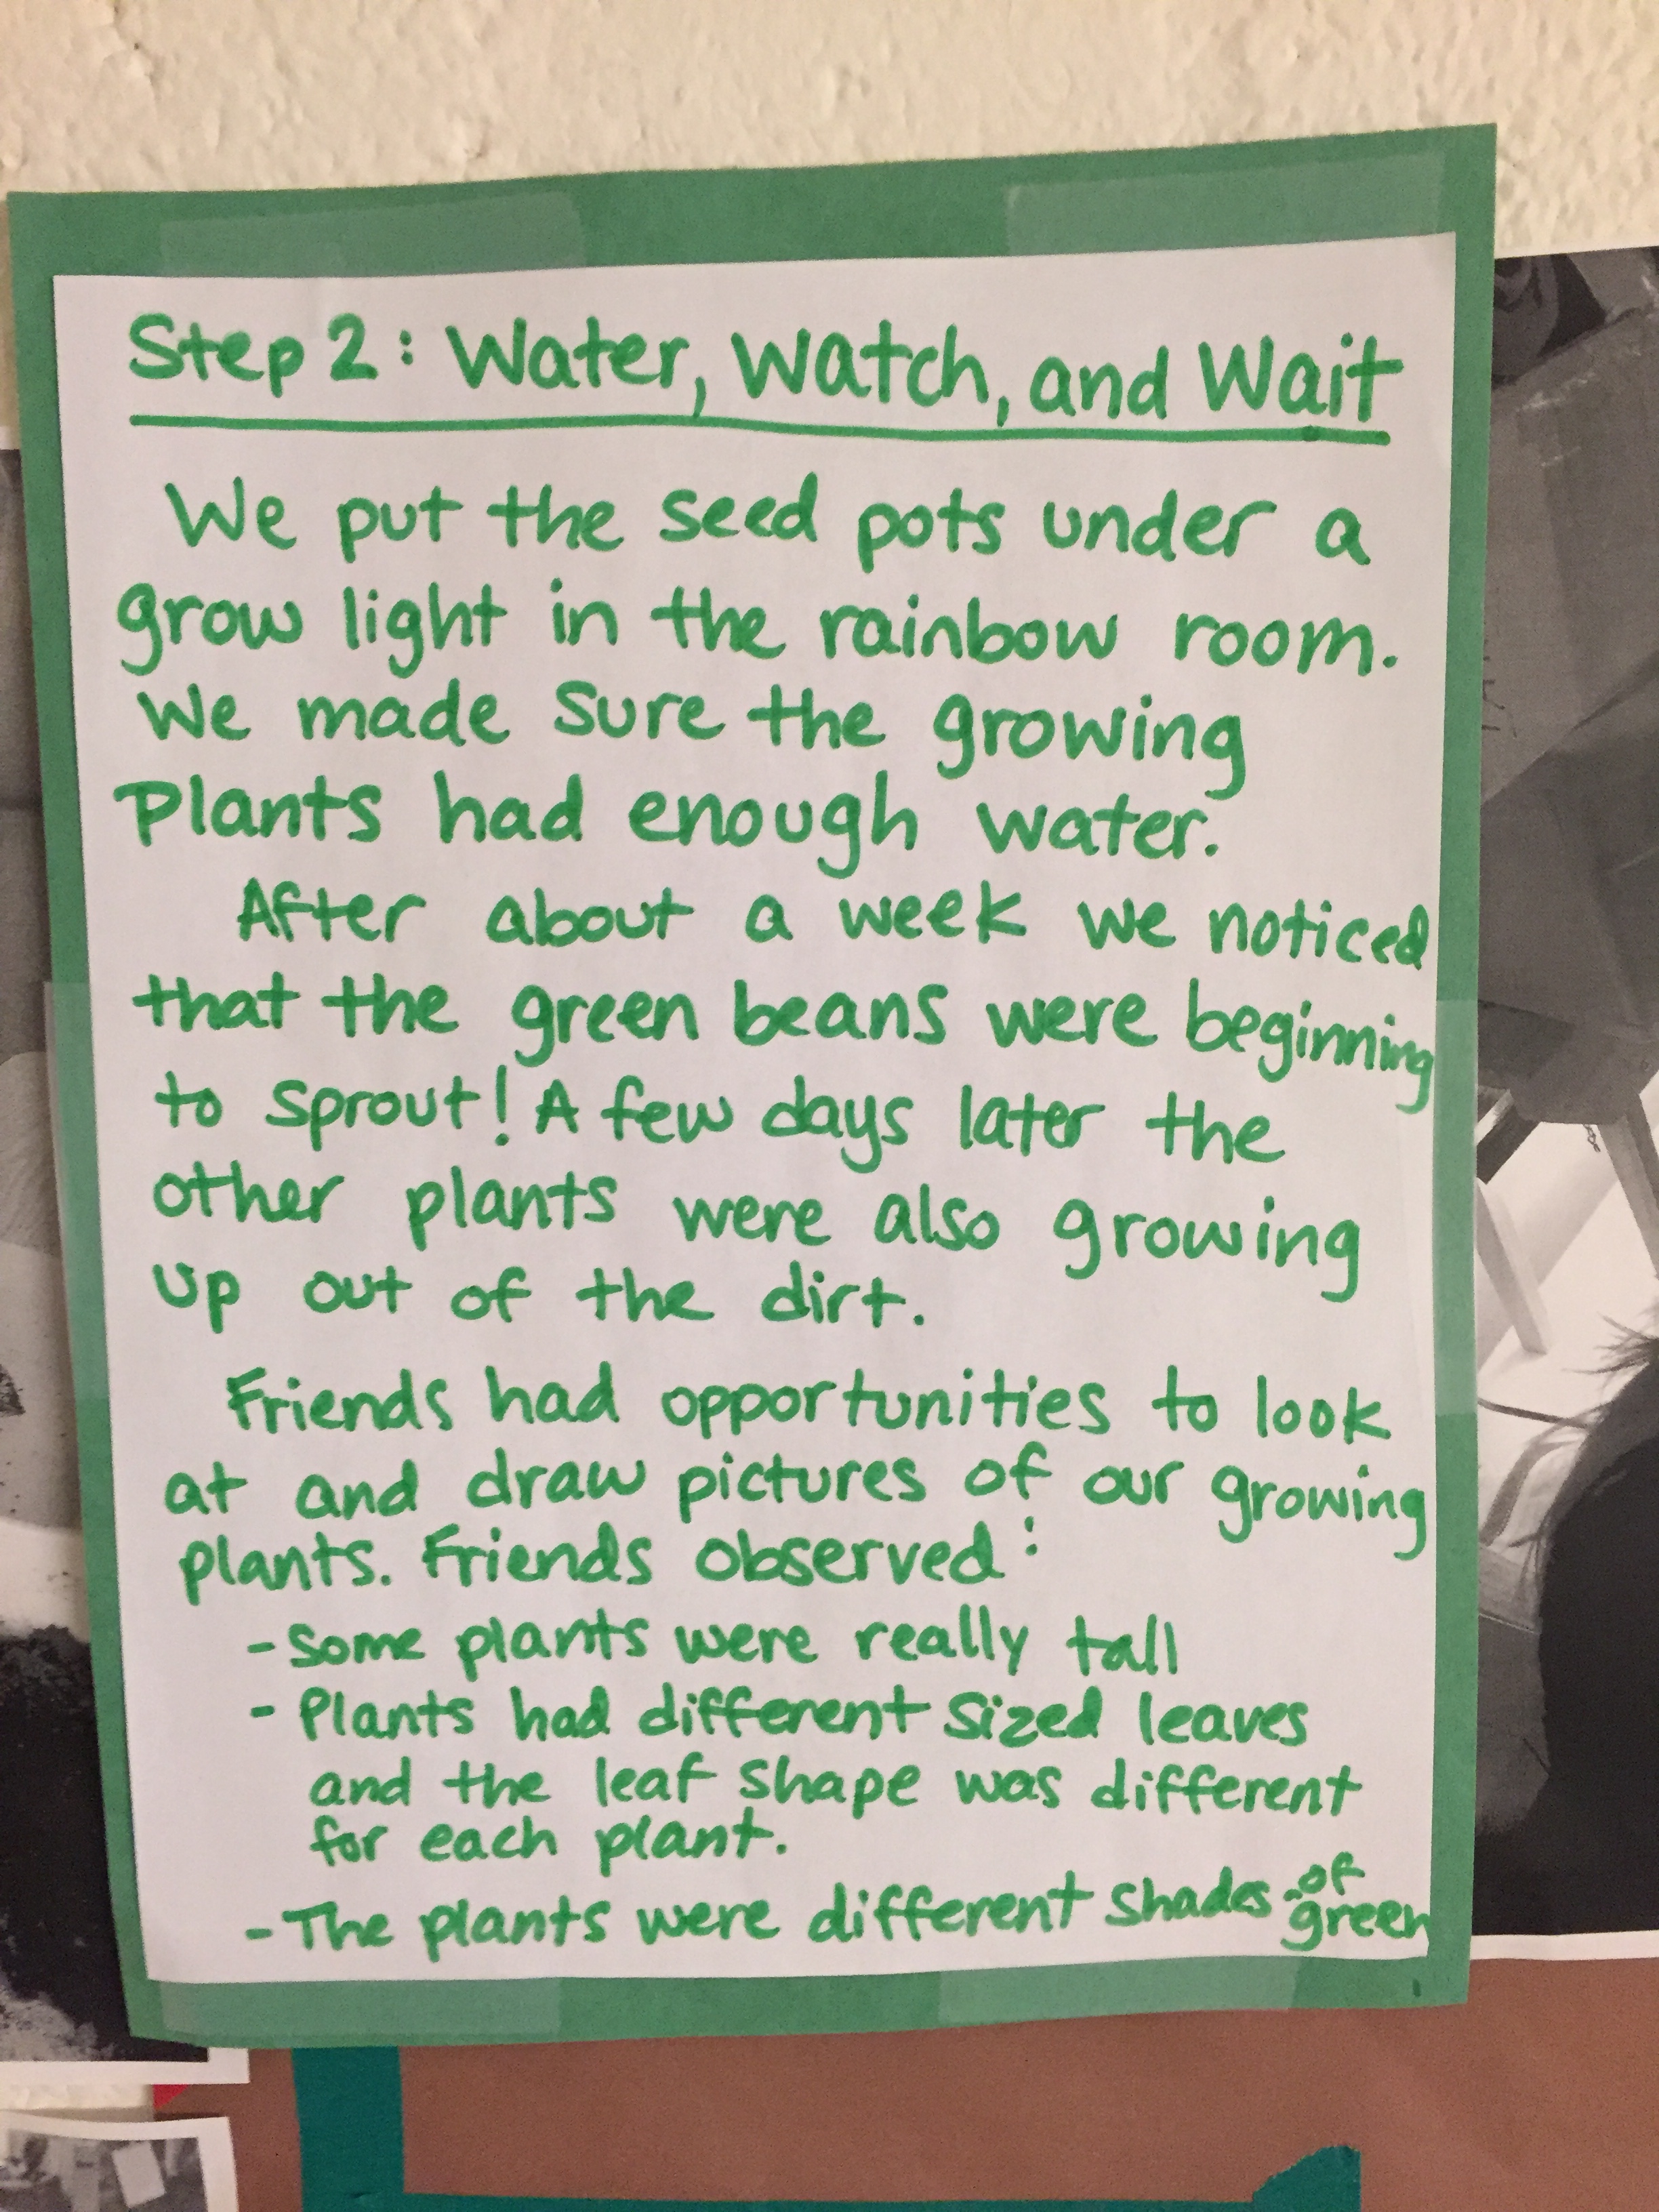 Step 2: Water, Watch, and Wait
We put the seed pots under a
grow light in the rainbow room.
We made sure the growing
Plants had enough water.
After about a week we noticed
that the green beans were beginning
to sprout! A few days later the
other plants were also growing
up out of the dirt.
Friends had opportunities to look
at and draw pictures of our growing
plants. Friends observed:
- Some plants were really tall
- Plants had different sized leaves
and the leaf shape was different
for each plant.
- The plants were different shades of green